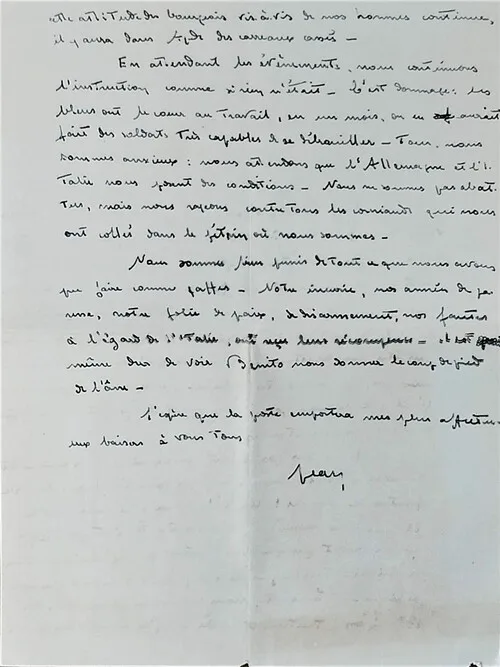 cette attitude des bourgeois vis à vis de nos hommes continue,
il y aura dans Agde des carreaux cassés —
En attendant les évènements, nous continuons
l'instruction comme si rien n'était — C'est dommage : les
bleus ont le cœur au travail, en un mois, on en aurait
fait des soldats très capables de se débrouiller — Tous, nous
sommes anxieux : nous attendons que l'Allemagne et l'I-
talie nous posent des conditions — Nous ne sommes pas abat-
tus, mais nous rageons contre tous les corniauds qui nous
ont collés dans le pétrin où nous sommes —
Nous sommes bien punis de tout ce que nous avons
pu faire comme gaffes — Notre incurie, nos années de pa-
resse, notre folie de paix, de désarmement, nos fautes
à l'égard de l'Italie, ont reçu leurs récompenses — 
même dur de voir Benito nous donner le coup de pied
de l'âne —
J'espère que la poste emportera mes plus affectu-
eux baisers à vous tous
Jean,